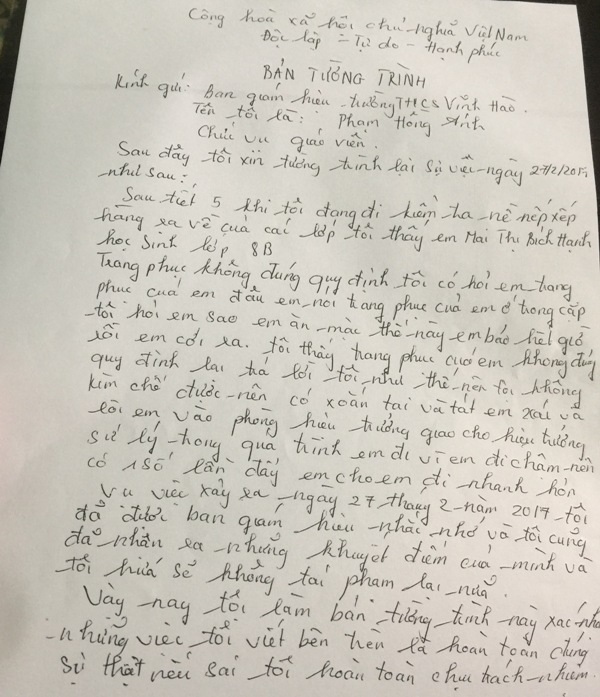 Cộng hoà xã hội chủ nghĩa Việt Nam
Độc lập - Tự do - Hạnh phúc
BẢN TƯỜNG TRÌNH
Kính gửi: Ban giám hiệu trường THCS Vĩnh Hào.
Tên tôi là: Phạm Hồng Ánh
Chức vụ giáo viên.
Sau đây tôi xin tường trình lại sự việc ngày 27/2/2017
như sau:
Sau tiết 5 khi tôi đang đi kiểm tra nề nếp xếp
hàng ra về của các lớp tôi thấy em Mai Thị Bích Hạnh
học sinh lớp 8B
Trang phục không đúng quy định tôi có hỏi em trang
phục của em đâu em nói trang phục của em ở trong cặp
tôi hỏi em sao em ăn mặc thế này em bảo hết giờ
rồi em cởi ra. tôi thấy trang phục của em không đúng
quy định lại trả lời tôi như thế nên tôi không
kìm chế được nên có xoắn tai và tát em và
lôi em vào phòng hiệu trưởng giao cho hiệu trưởng
sử lý trong quá trình em đi vì em đi chậm nên
có 1 số lần đẩy em cho em đi nhanh hơn
Vụ việc xảy ra ngày 27 tháng 2 năm 2017 tôi
đã được ban giám hiệu nhắc nhở và tôi cũng
đã nhận ra những khuyết điểm của mình và
tôi hứa sẽ không tái phạm lại nữa.
Vậy nay tôi làm bản tường trình này xác nhận
những việc tôi viết bên trên là hoàn toàn đúng
sự thật nếu sai tôi hoàn toàn chịu trách nhiệm.